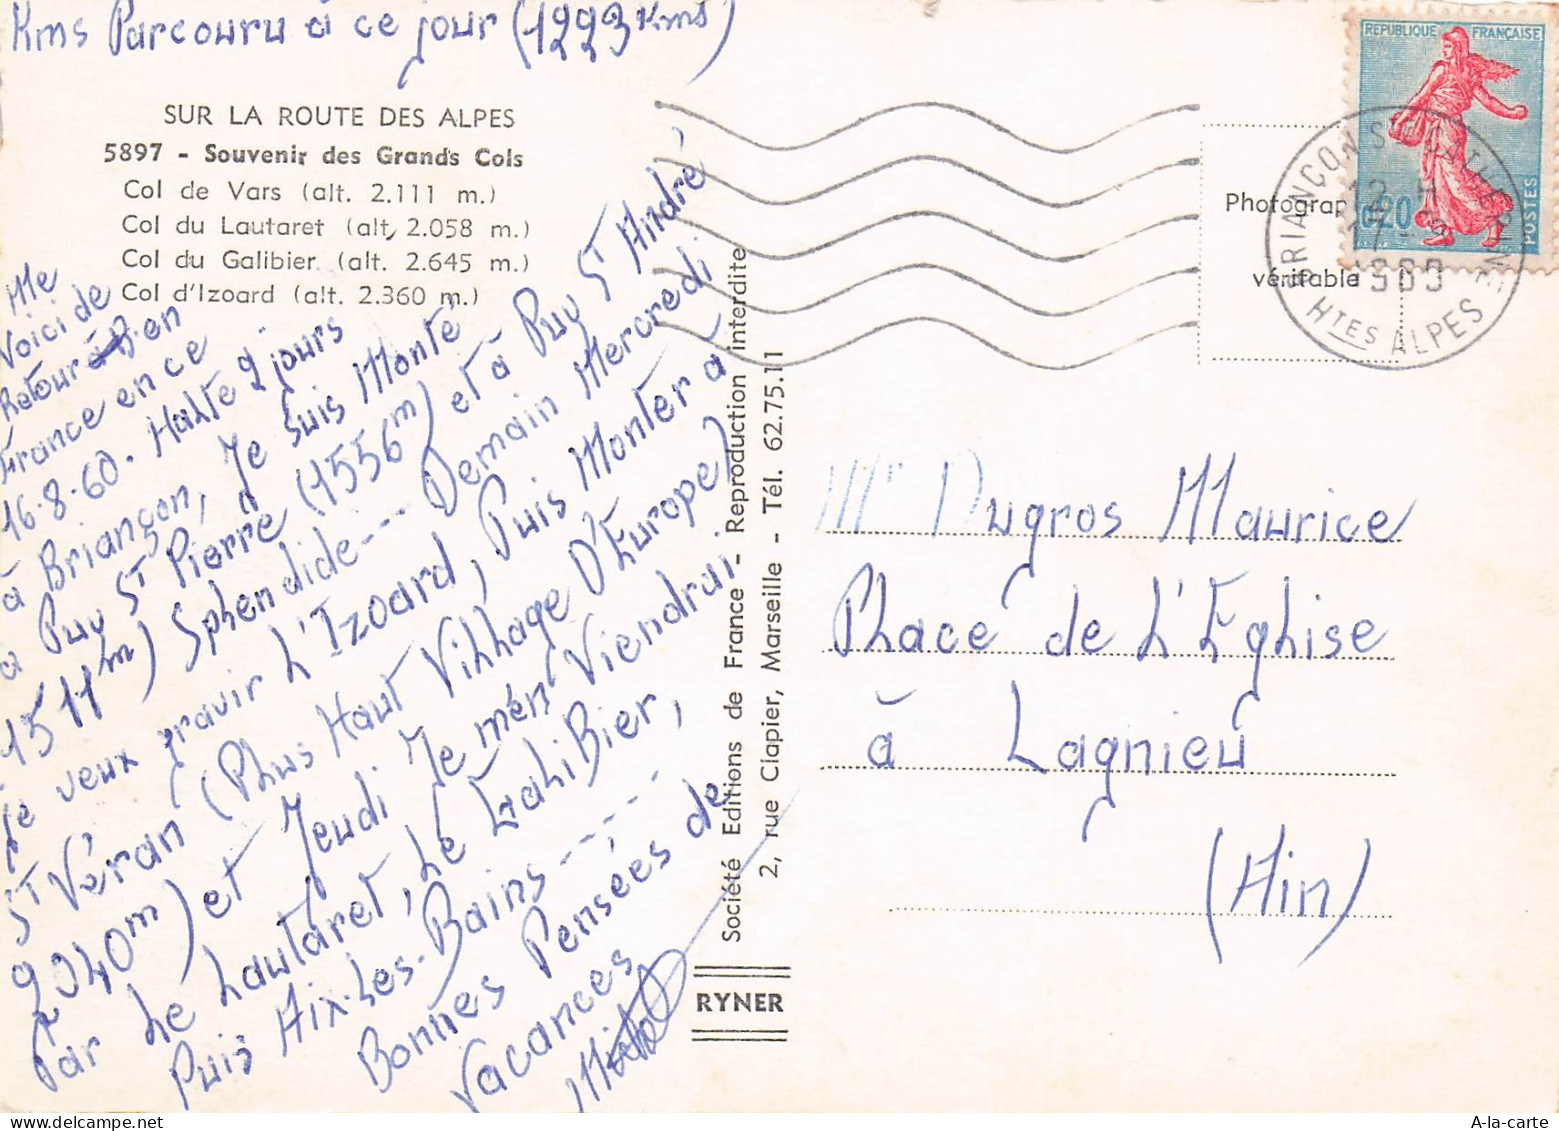 Kms Parcouru à ce jour (1223 Kms)
SUR LA ROUTE DES ALPES
5897 - Souvenir des Grands Cols
Col de Vars (alt. 2.111 m.)
Col du Lautaret (alt, 2.058 m.)
Col du Galibier (alt. 2.645 m.)
Col d'Izoard (alt. 2.360 m.)
Me
Voici de
Retour en
France en ce
16.8.60. Halte 2 jours
à Briançon, Je suis Monté
a Puy St Pierre (1556m) et à Puy St André
1511m) Splendide--- Demain Mercredi
je veux gravir L'Izoard, Puis Monter à
St Véran (Plus Haut Village D'Europe)
2040m) et Jeudi Je m'én Viendrai
Par Le Lautaret, Le GaliBier,
Puis Aix-Les-Bains----
Bonnes Pensées de
Vacances
Michel
Société Editions de France - Reproduction interdite
2, rue Clapier, Marseille - Tél. 62.75.11
RYNER
REPUBLIQUE FRANÇAISE
0,20
POSTES
Photograp
véritable
BRIANÇON STE CATHERINE
12 H
17 - 8
1960
HTES ALPES
Mr Dugros Maurice
Place de L'Eglise
à Lagnieu
(Ain)
A-la-carte